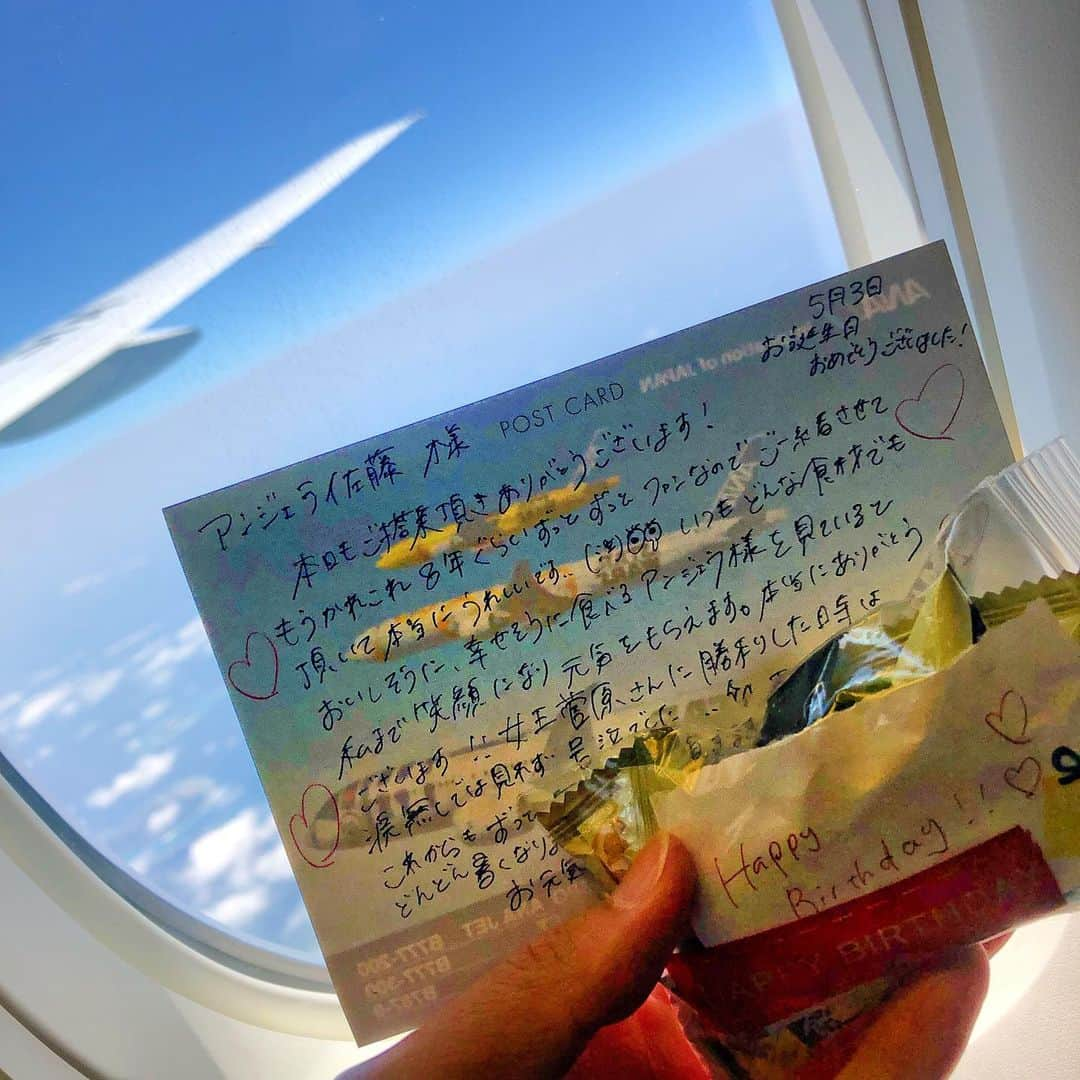 5月3日
お誕生日
おめでとうございました!
POST CARD
アンジェラ佐藤 様
本日もご搭乗頂きありがとうございます!
もうかれこれ8年ぐらいずっとずっとファンなのでご一緒させて
頂いて本当にうれしいです… いつもどんな食材でも
おいしそうに、幸せそうに食べるアンジェラ様を見ているで
私まで笑顔になり元気をもらえます。本当にありがとう
ございます!! 女王菅原さんに勝利した日等は
涙無しでは見れず 号泣でした…
これからもずっと
どんどん暑くなりま
お元気
ANA
of JAPAN
B777-200
B777-300
JET
Happy
Birthday!!
HAPPY BIRTHDAY